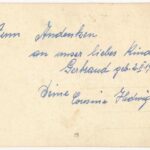 zum Andenken
an unser liebes Kind
Gertraud geb.
Deine Cousine Hedwig